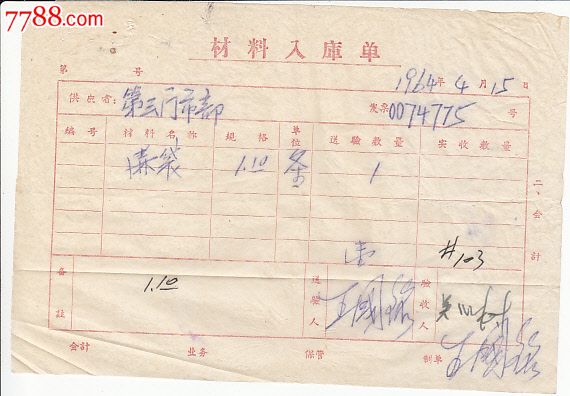 7788.com
材料入庫单
第 号 1964年4月15日
供应者: 第三门市部 发票 0074775 号
編号 材料名称 規格 单位 送驗数量 实收数量
麻袋 1.10 条 1
壹 #103
备註 1.10 送驗人 王國 驗收人
二、会計
会計 业务 保管 制单 王國